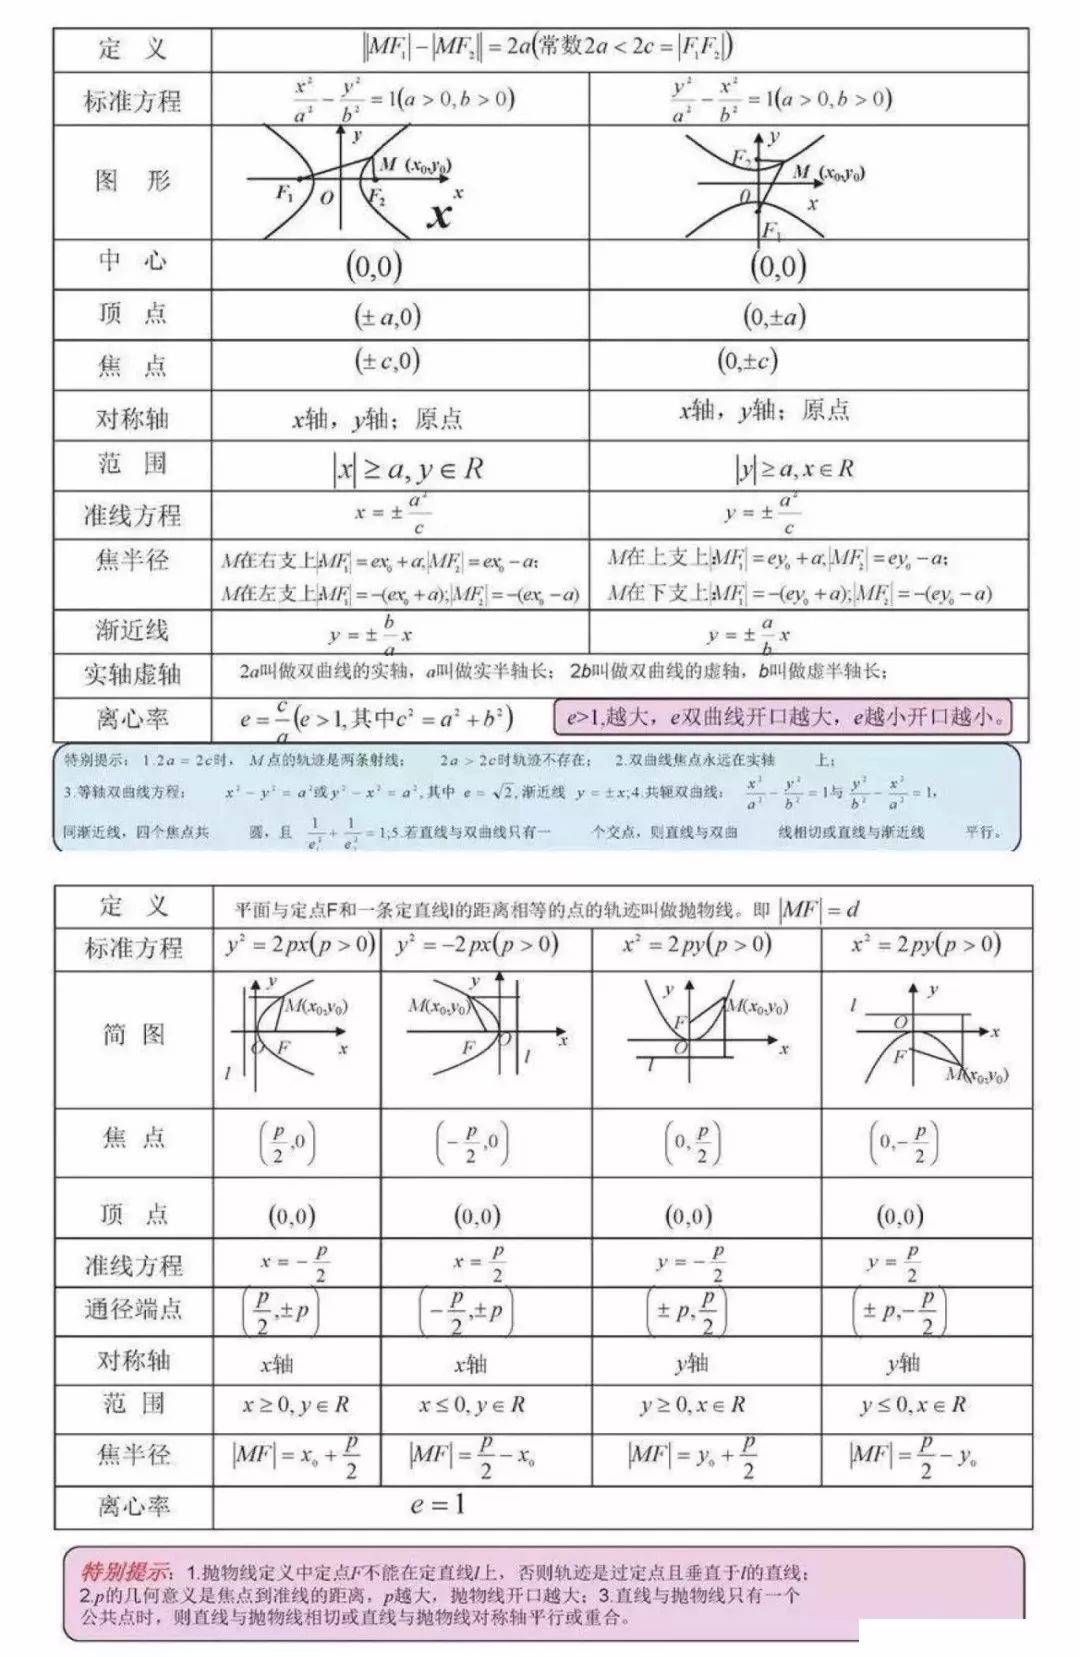 定 义 ||MF₁|－|MF₂||＝2a(常数2a < 2c＝|F₁F₂|)
标准方程 x²/a² － y²/b² ＝1(a > 0, b > 0) y²/a² － x²/b² ＝1(a > 0, b > 0)
图 形 y M (x₀,y₀) F₁ O F₂ x x y F₂ M (x₀,y₀) 0 x F₁
中 心 (0,0) (0,0)
顶 点 (± a,0) (0,±a)
焦 点 (± c,0) (0,±c)
对称轴 x轴，y轴；原点 x轴，y轴；原点
范 围 |x| ≥ a, y ∈ R |y| ≥ a, x ∈ R
准线方程 x＝± a²/c y＝± a²/c
焦半径 M在右支上|MF₁|＝ex₀＋a,|MF₂|＝ex₀－a; M在上支上|MF₁|＝ey₀＋a,|MF₂|＝ey₀－a;
M在左支上|MF₁|＝－(ex₀＋a);|MF₂|＝－(ex₀－a) M在下支上|MF₁|＝－(ey₀＋a);|MF₂|＝－(ey₀－a)
渐近线 y＝± b/a x y＝± a/b x
实轴虚轴 2a叫做双曲线的实轴，a叫做实半轴长；2b叫做双曲线的虚轴，b叫做虚半轴长；
离心率 e＝c/a (e > 1, 其中c²＝a²＋b²) e>1,越大，e双曲线开口越大，e越小开口越小。
特别提示：1.2a＝2c时，M点的轨迹是两条射线； 2a > 2c时轨迹不存在； 2.双曲线焦点永远在实轴 上；
3.等轴双曲线方程： x²－y²＝a²或y²－x²＝a²,其中 e＝√2,渐近线 y＝±x;4.共轭双曲线： x²/a²－y²/b²＝1与y²/b²－x²/a²＝1,
同渐近线，四个焦点共 圆，且 1/e₁²＋1/e₂²＝1;5.若直线与双曲线只有一 个交点，则直线与双曲 线相切或直线与渐近线 平行。
定 义 平面与定点F和一条定直线l的距离相等的点的轨迹叫做抛物线。即 |MF|＝d
标准方程 y²＝2px(p > 0) y²＝－2px(p > 0) x²＝2py(p > 0) x²＝2py(p > 0)
简 图 y M(x₀,y₀) O F x l y M(x₀,y₀) F O x l y M(x₀,y₀) F O x l l y O x F M(x₀,y₀)
焦 点 (p/2,0) (－p/2,0) (0,p/2) (0,－p/2)
顶 点 (0,0) (0,0) (0,0) (0,0)
准线方程 x＝－p/2 x＝p/2 y＝－p/2 y＝p/2
通径端点 (p/2,±p) (－p/2,±p) (± p,p/2) (± p,－p/2)
对称轴 x轴 x轴 y轴 y轴
范 围 x ≥ 0, y ∈ R x ≤ 0, y ∈ R y ≥ 0, x ∈ R y ≤ 0, x ∈ R
焦半径 |MF|＝x₀＋p/2 |MF|＝p/2－x₀ |MF|＝y₀＋p/2 |MF|＝p/2－y₀
离心率 e＝1
特别提示：1.抛物线定义中定点F不能在定直线l上，否则轨迹是过定点且垂直于l的直线；
2.p的几何意义是焦点到准线的距离，p越大，抛物线开口越大；3.直线与抛物线只有一个
公共点时，则直线与抛物线相切或直线与抛物线对称轴平行或重合。